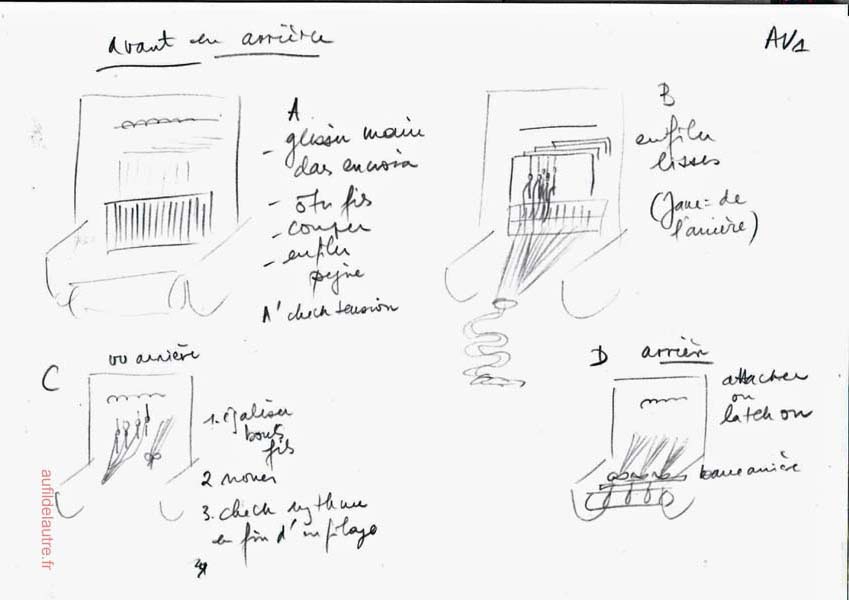 avant en arrière
AV1
A
- glisser main
dans encroix
- ôter fils
- couper
- enfiler
peigne
A' check tension
B
enfiler
lisses
(Jane = de
l'arrière)
C
vu arrière
1. égaliser
bouts
fils
2 nouer
3. check rythme
en fin d'enfilage
D
arrière
attacher
ou
latch on
barre arrière
aufildelautre.fr